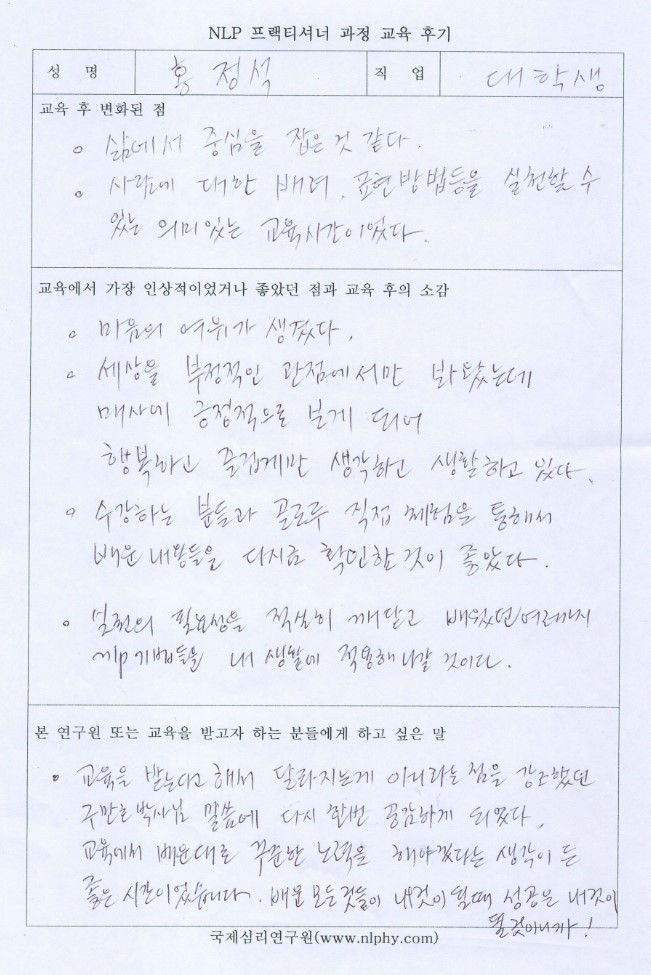 NLP 프랙티셔너 과정 교육 후기
성 명 홍 정석 직 업 대학생
교육 후 변화된 점
삶에서 중심을 잡은 것 같다.
사람에 대한 배려, 표현방법등을 실천할 수
있는 의미있는 교육시간이었다.
교육에서 가장 인상적이었거나 좋았던 점과 교육 후의 소감
마음의 여유가 생겼다.
세상을 부정적인 관점에서만 봐왔는데
매사에 긍정적으로 보게 되어
행복하고 즐겁게만 생각하고 생활하고 있다.
수강하는 분들과 골고루 직접 체험을 통해서
배운 내용들을 다시금 확인한 것이 좋았다.
실천의 필요성을 절실히 깨닫고 배웠던 여러가지
nlp기법들을 내 생활에 적용해 나갈 것이다.
본 연구원 또는 교육을 받고자 하는 분들에게 하고 싶은 말
교육을 받는다고 해서 달라지는게 아니라는 점을 강조했던
박사님 말씀에 다시 한번 공감하게 되었다.
교육에서 배운대로 꾸준한 노력을 해야겠다는 생각이 든
좋은 시간이었습니다. 배운 모든것들이 내것이 될때 성공은 내것이
될것아니까!
국제심리연구원(www.nlphy.com)